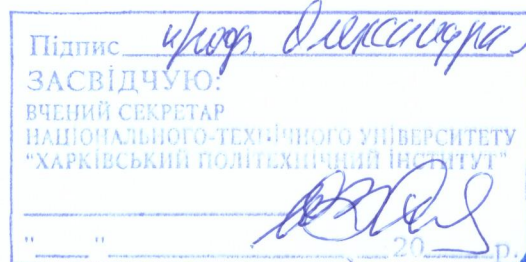 Підпис проф. Олександра
ЗАСВІДЧУЮ:
ВЧЕНИЙ СЕКРЕТАР
НАЦІОНАЛЬНОГО-ТЕХНІЧНОГО УНІВЕРСИТЕТУ
"ХАРКІВСЬКИЙ ПОЛІТЕХНІЧНИЙ ІНСТИТУТ"
"___"________20___р.